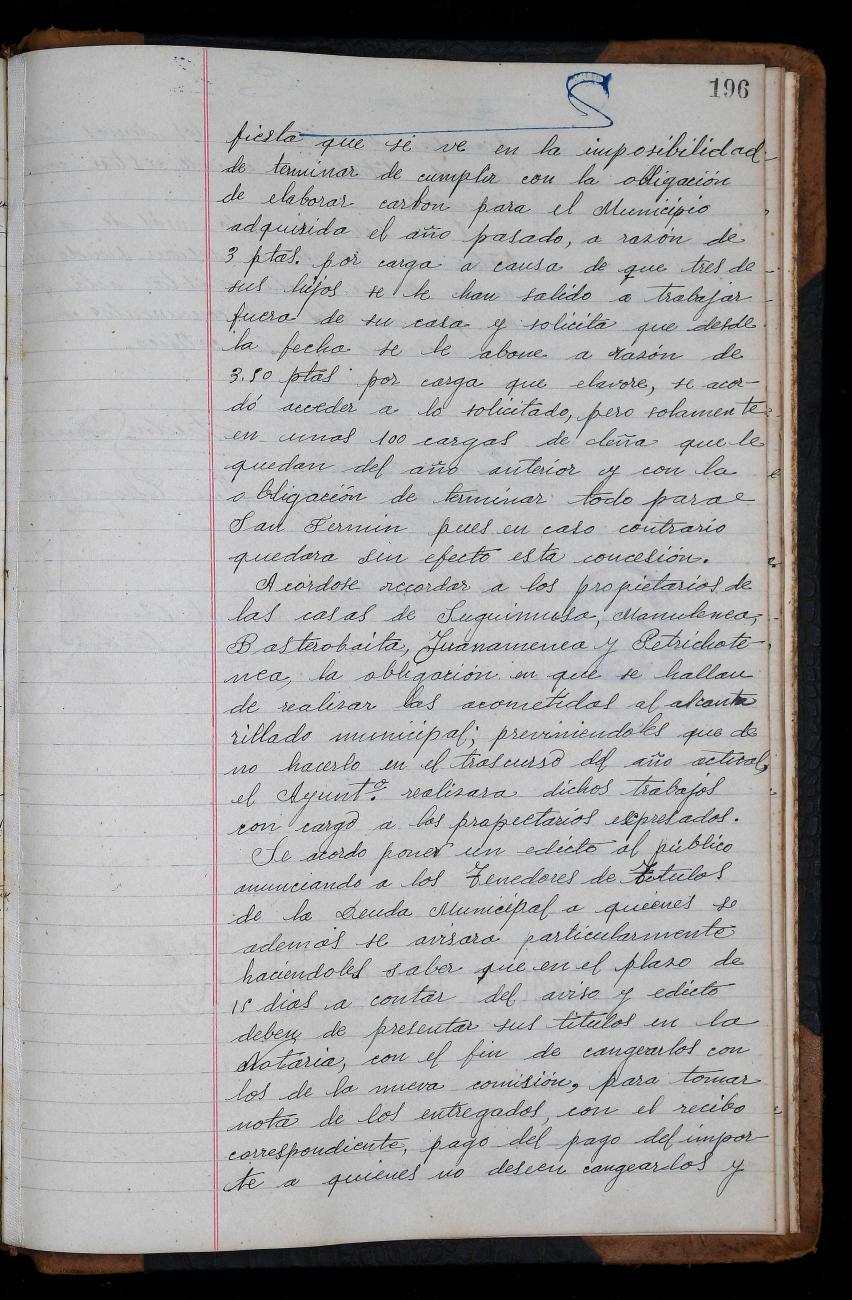 196
fiesta que se ve en la imposibilidad
de terminar de cumplir con la obligación
de elaborar carbon para el Municipio
adquirida el año pasado, a razón de
3 ptas. por carga a causa de que tres de
sus hijos se le han salido a trabajar
fuera de su casa y solicita que desde
la fecha se le abone a razón de
3.50 ptas por carga que elavore, se acor-
dó acceder a lo solicitado, pero solamente
en unas 100 cargas de leña que le
quedan del año anterior y con la
obligación de terminar todo para
San Fermin pues en caso contrario
quedara sin efecto esta concesión.
Acordose recordar a los propietarios de
las casas de Suquinusa, Manulenea,
Basterobaita, Juanamenea y Petrichote
nea, la obligación en que se hallan
de realizar las acometidas al alcanta
rillado municipal; previniendoles que de
no hacerlo en el trascurso del año actual,
el Ayuntº. realizara dichos trabajos
con cargo a los propietarios expresados.
Se acordo poner un edicto al público
anunciando a los Tenedores de Titulos
de la Deuda Municipal a quienes se
ademas se avisara particularmente
haciendoles saber que en el plazo de
15 dias a contar del aviso y edicto
deben de presentar sus titulos en la
Notaria, con el fin de cangearlos con
los de la nueva comisión, para tomar
nota de los entregados, con el recibo
correspondiente, pago del pago del impor-
te a quienes no deseen cangearlos y